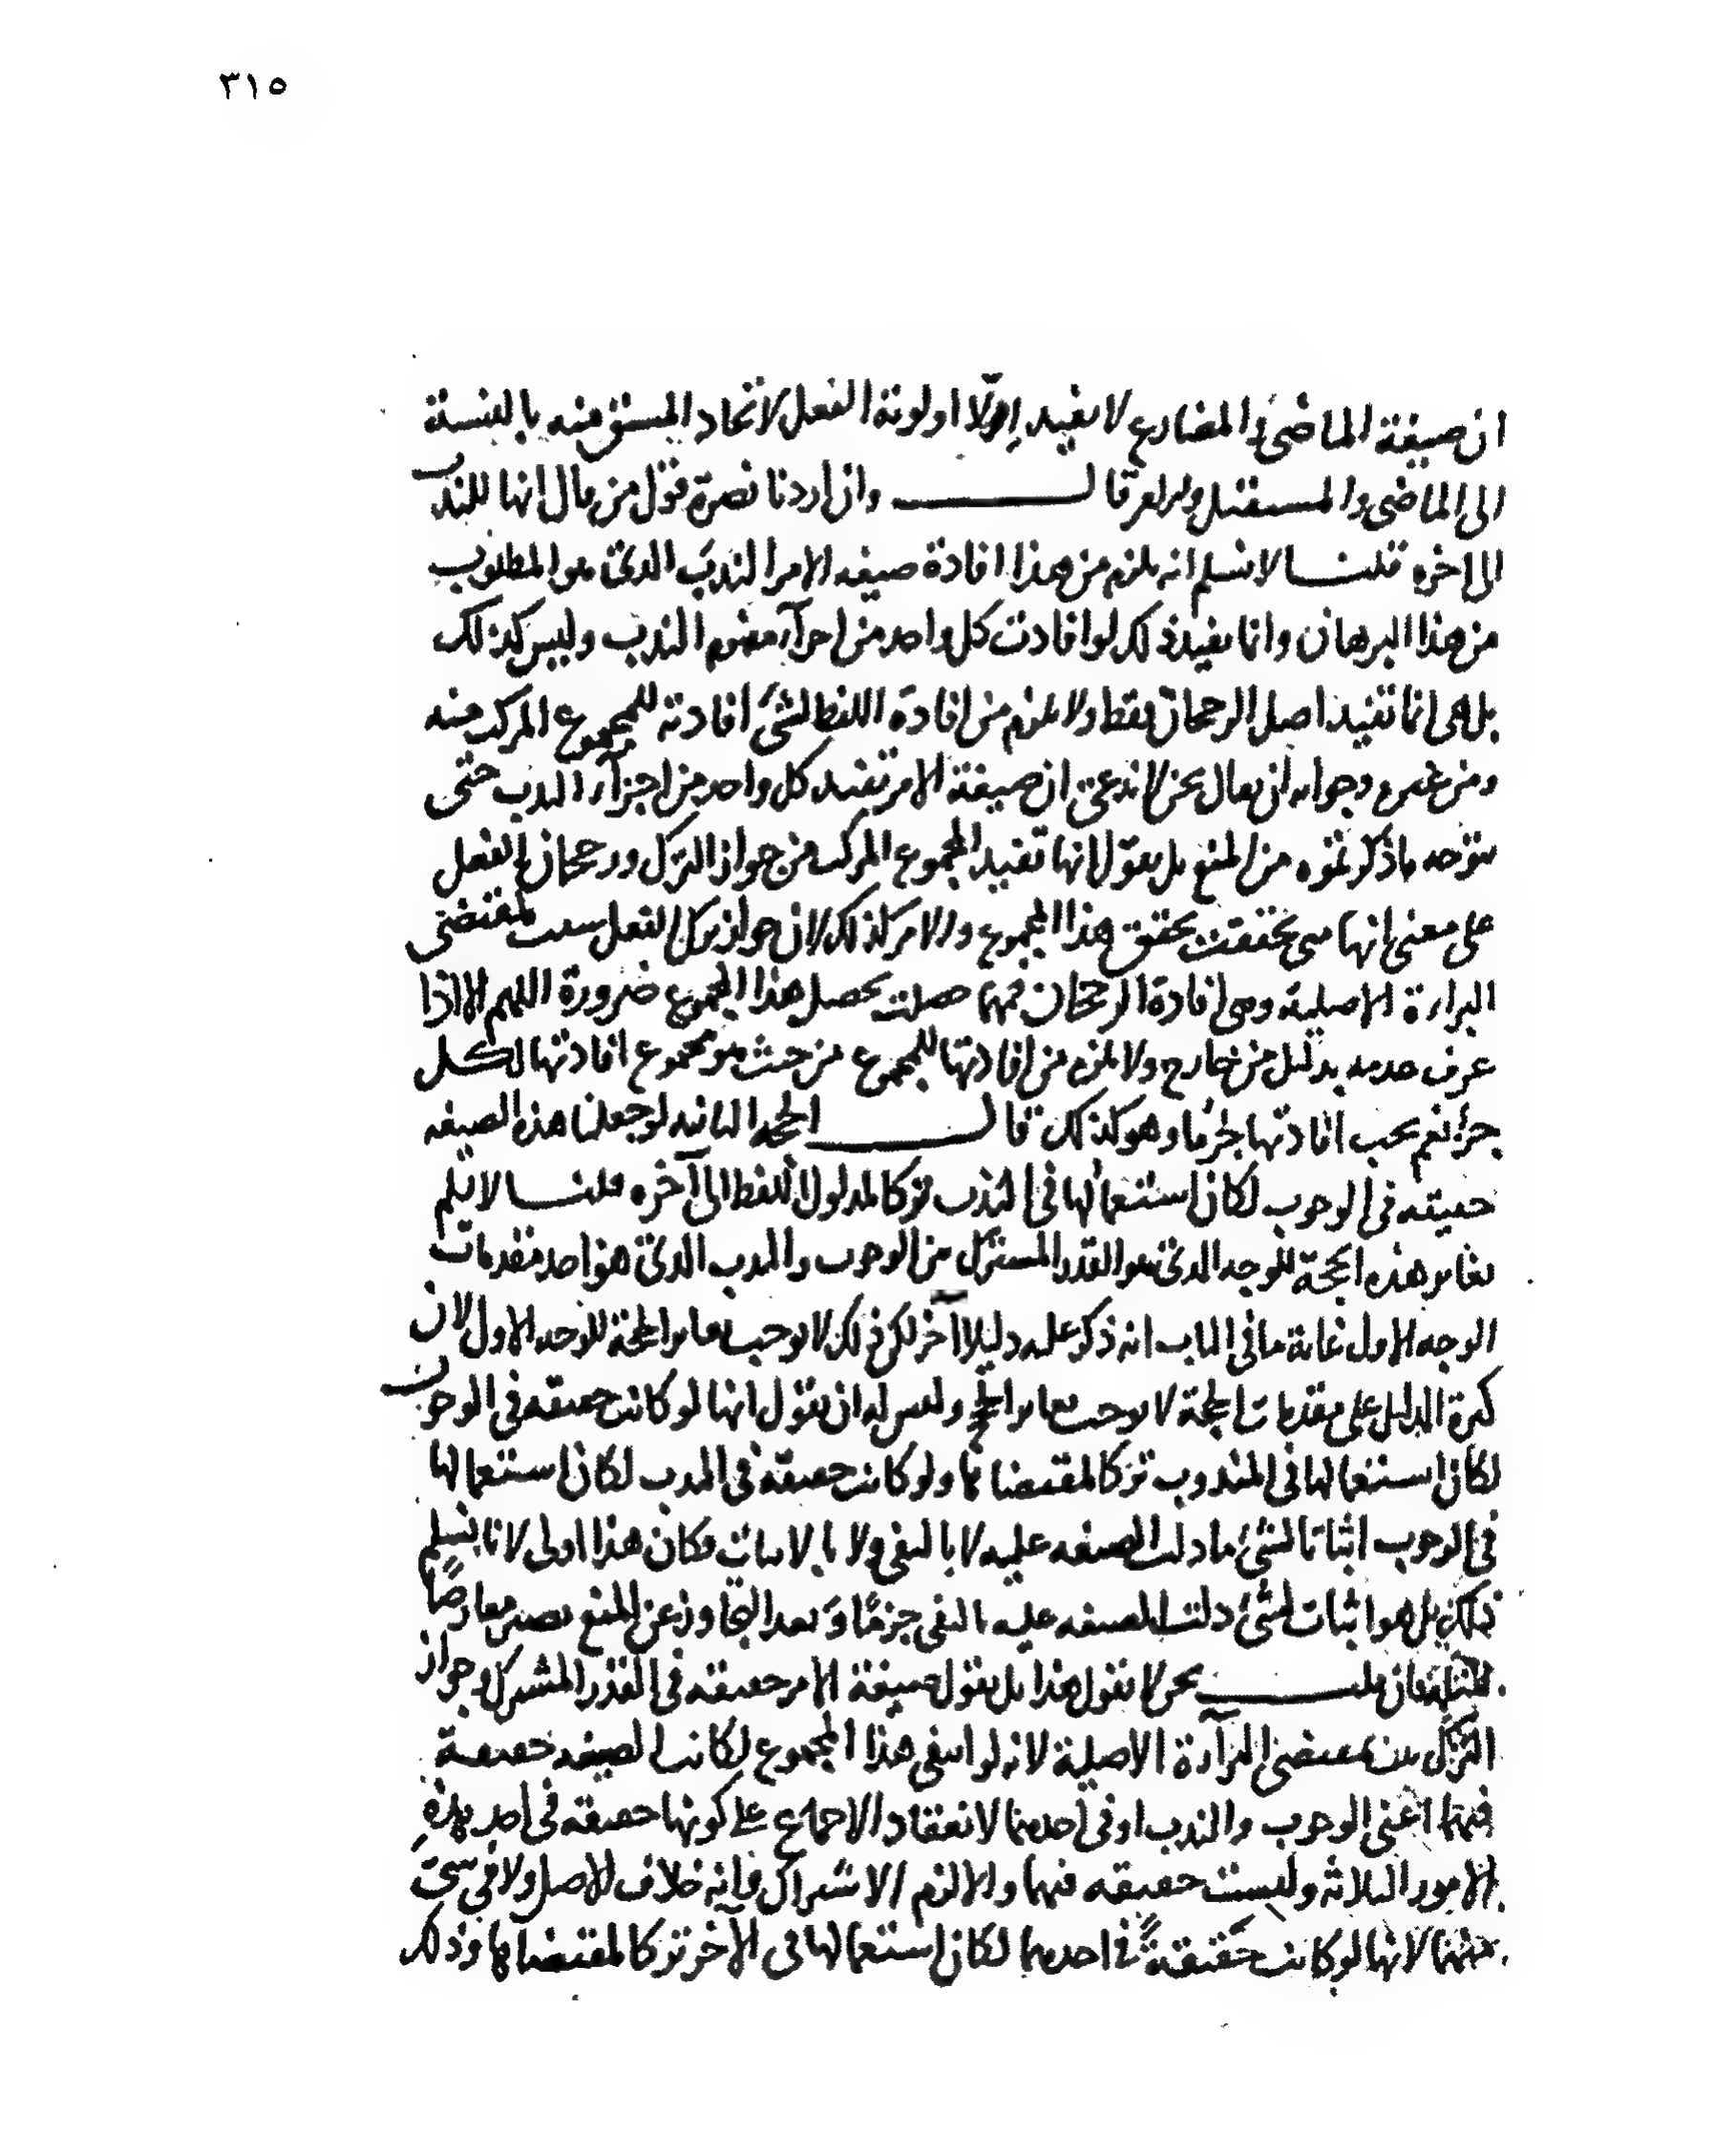 ٣١٥
ان صيغة الماضى والمضارع لا يفيد اولوية الفعل لاتحاد المشتق منه بالنسبة
الى الماضى والمستقبل قال وان اردنا نصرة قول من قال انها للندب
الى اخره قلنا لا نسلم انه يلزم من هذا افادة صيغه الامر الندب الذى هو المطلوب
من هذا البرهان وانما يفيد ذلك لو افادت كل واحد من اجزآء مفهوم الندب وليس كذلك
بل هى انما تفيد اصل الرجحان فقط ولا يلزم من افادة اللفظ لشئ افادته للمجموع المركب منه
ومن غيره وجوابه ان يقال نحن لا ندعى ان صيغة الامر تفيد كل واحد من اجزآء الندب حتى
يتوجه ما ذكرتموه من المنع بل نقول انها تفيد المجموع المركب من جواز الترك ورجحان الفعل
على معنى انها متى تحققت تحقق هذا المجموع والامر كذلك لان جواز ترك الفعل بمقتضى
البراءة الاصلية وهى افادة الرجحان فمهما حصلت يحصل هذا المجموع ضرورة اللهم الا اذا
عرف عدمه بدليل من خارج ولا يلزم من افادتها للمجموع من حيث هو مجموع افادتها لكل
جزء نعم يجب افادتها لجزء ما وهو كذلك قال الحجه الثانيه لو جعلنا هذه الصيغه
حقيقه فى الوجوب لكان استعمالها فى الندب تركا لمدلول اللفظ الى آخره قلنا لا نسلم
تغاير هذه الحجة للوجه الذى هو القدر المشترك بين الوجوب والندب الذى هو احد مقدمات
الوجه الاول غاية ما فى الباب انه ذكر عليه دليلا اخر لكن ذلك لا يوجب تغاير الحجة للوجه الاول لان
كثرة الدليل على مقدمات الحجة لا يوجب تغاير الحجج وليس له ان يقول انها لو كانت حقيقه فى الوجوب
لكان استعمالها فى المندوب تركا لمقتضاها ولو كانت حقيقه فى الندب لكان استعمالها
فى الوجوب اثباتا لشئ ما دلت الصيغه عليه لا بالنفى ولا بالاثبات فكان هذا اولى لانا نسلم
ذلك بل هو اثبات لشئ دلت الصيغه عليه النفى جزمًا وبعد التجاوز عن المنع يصير معارضًا
قلت نحن لا نقول هذا بل نقول صيغة الامر حقيقه فى القدر المشترك وجواز
الترك بمقتضى البرآءة الاصلية لانه لو انتفى هذا المجموع لكانت الصيغه حقيقة
فيهما اعنى الوجوب والندب او فى احدهما لانعقاد الاجماع على كونها حقيقه فى احد هذه
الامور الثلاثة وليست حقيقه فيهما والا لزم الاشتراك وانه خلاف الاصل ولا فى شئ
منهما لانها لو كانت حقيقةً فى احدهما لكان استعمالها فى الآخر تركا لمقتضاها وذلك